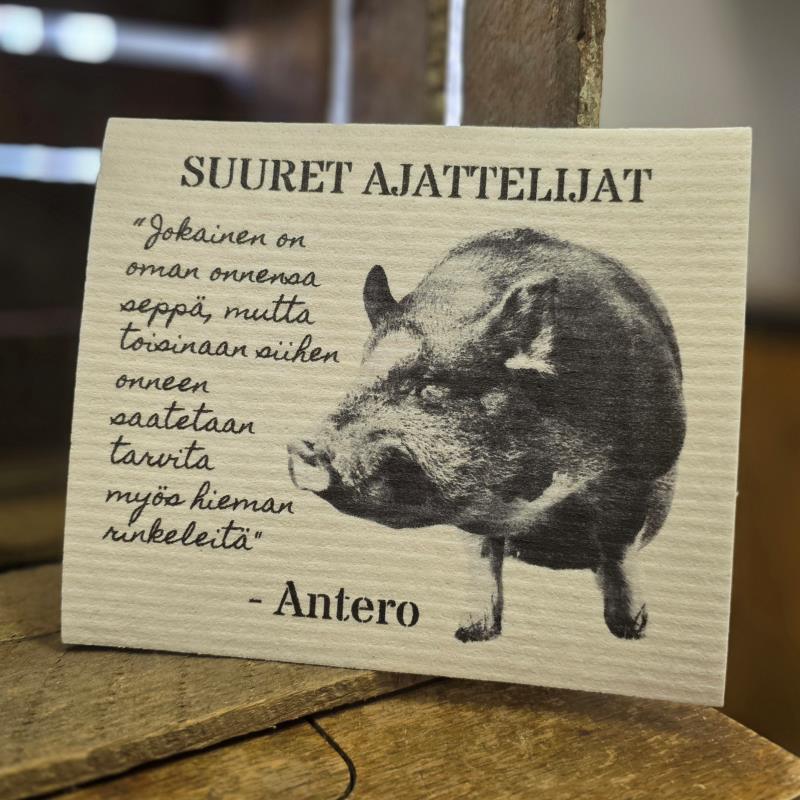 SUURET AJATTELIJAT
"Jokainen on
oman onnensa
seppä, mutta
toisinaan siihen
onneen
saatetaan
tarvita
myös hieman
rinkeleitä"
- Antero